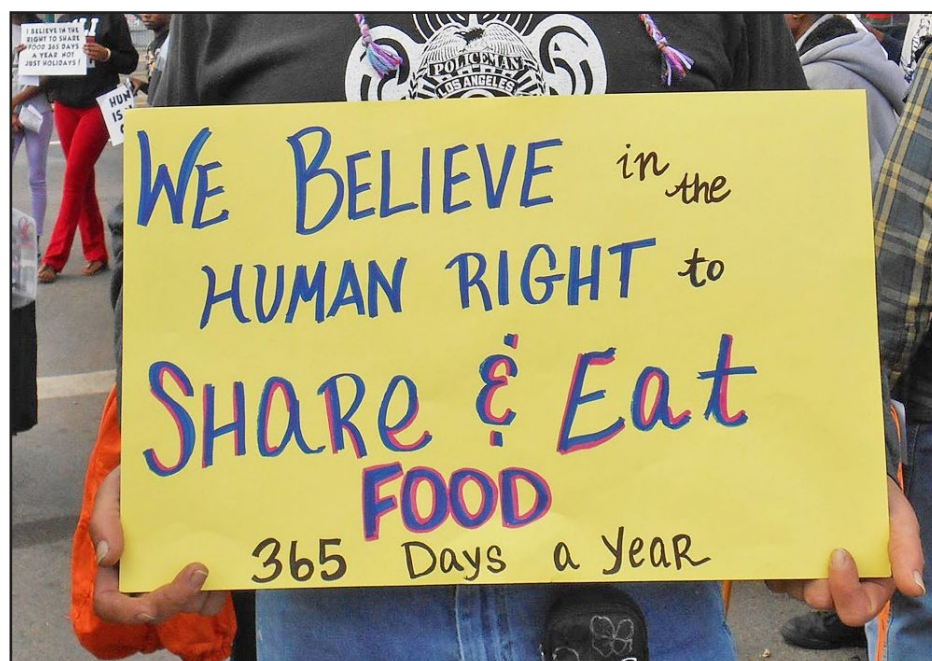 I BELIEVE IN THE
RIGHT TO SHARE
FOOD 365 DAYS
A YEAR NOT
JUST HOLIDAYS!
HUM
IS
POLICEMAN
LOS ANGELES
WE BELIEVE in the
HUMAN RIGHT to
SHARe & Eat
FOOD
365 Days a YeaR